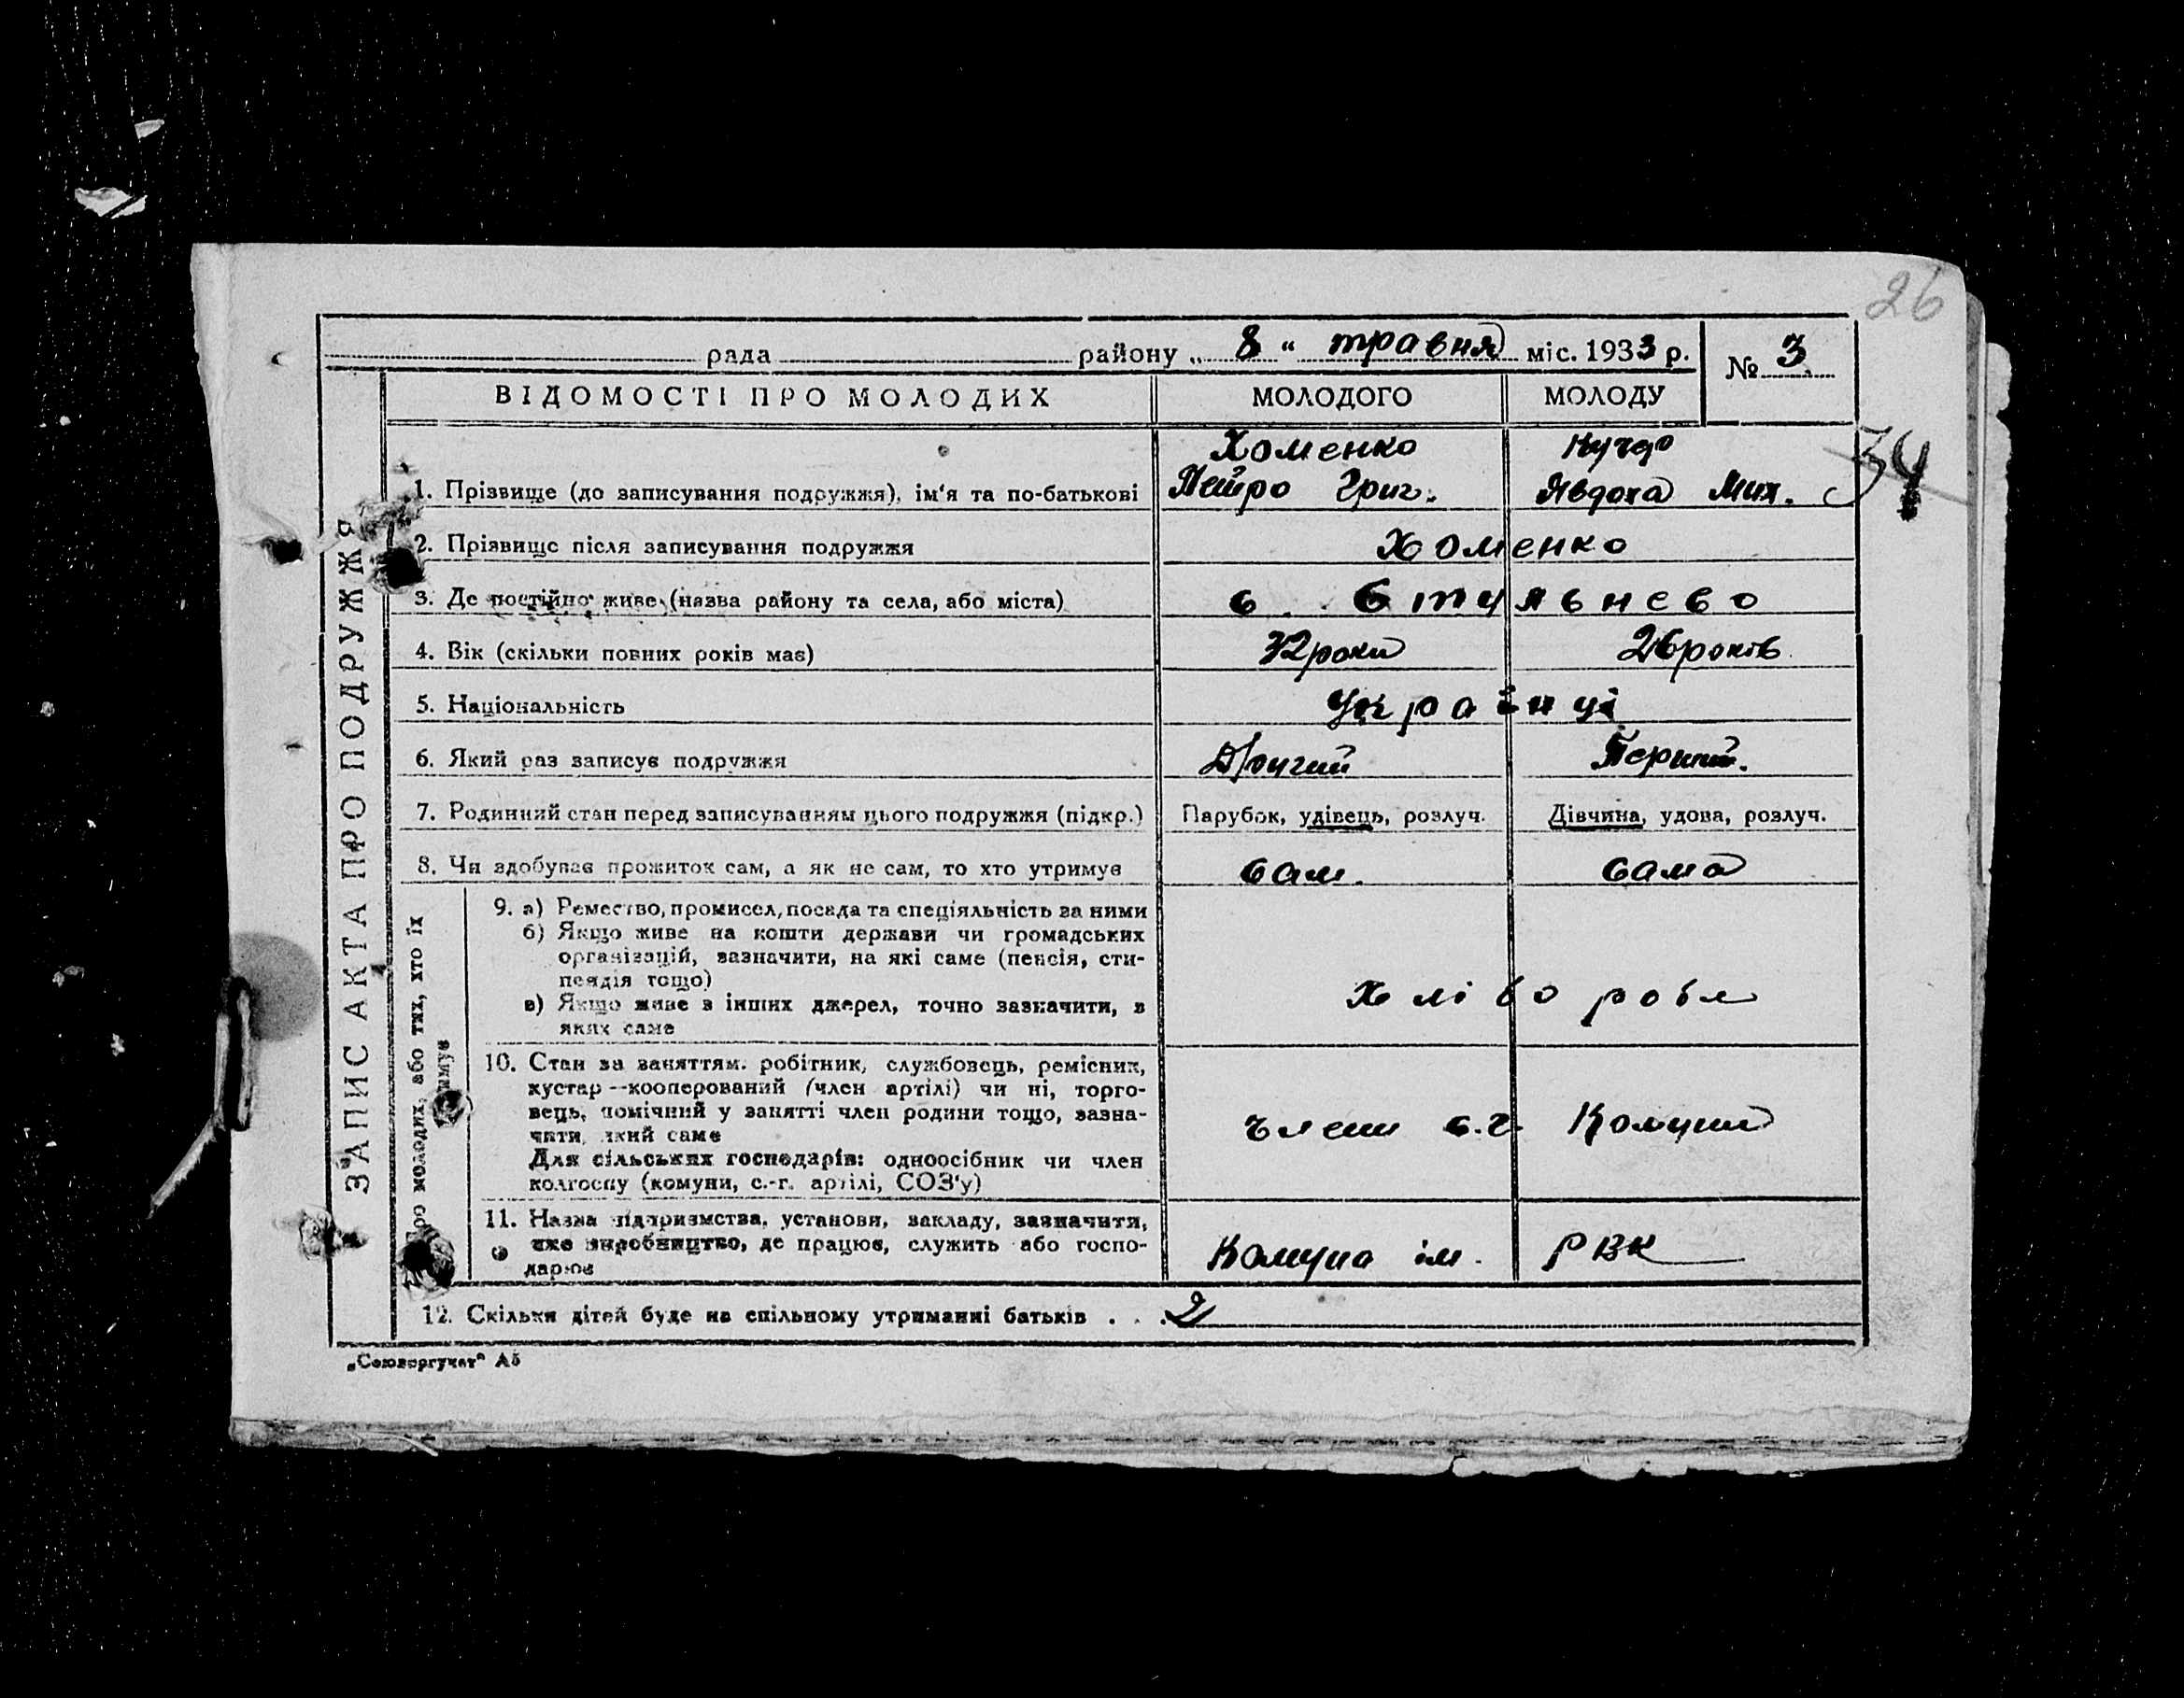 26
рада района „ 8 “ травня міс. 1933 р.
№ 3
ВІДОМОСТІ ПРО МОЛОДИХ
МОЛОДОГО
МОЛОДУ
34
ЗАПИС АКТА ПРО ПОДРУЖЖЯ
1. Прізвище (до записування подружжя), ім‘я та по-батькові
Хоменко
Петро Григ.
Явдоха Мих.
2. Прізвище після записування подружжя
Хоменко
3. Де постійно живе (назва району та села, або міста)
с. Стуньнево
4. Вік (скільки повних років має)
32 роки
26 років
5. Національність
Українці
6. Який раз записує подружжя
Другий
Перший.
7. Родинний стан перед записуванням цього подружжя (підкр.)
Парубок, удівець, розлуч.
Дівчина, удова, розлуч.
8. Чи здобуває прожиток сам, а як не сам, то хто утримує
Сам.
Сама
Про молодих, або тих, хто їх
9. а) Ремество, промисел, посада та спеціяльність за ними
б) Якщо живе на кошти держави чи громадських
організацій, зазначити, на які саме (пенсія, сти-
пендія тощо)
в) Якщо живе з інших джерел, точно зазначити, з
яких саме
Хлібороби
10. Стан за заняттям: робітник, службовець, ремісник,
кустар—кооперований (член артілі) чи ні, торго-
вець, помічний у занятті член родини тощо, зазна-
чити, який саме
Для сільських господарів: одноосібник чи член
колгоспу (комуни, с.-г. артілі, СОЗ‘у)
члени с.г. Комуни
11. Назва підприємства, установи, закладу, зазначити,
яке виробництво, де працює, служить або госпо-
дарює
Комуна ім. РВК
12. Скільки дітей буде на спільному утриманні батьків . . . 2
„Союзоргучет“ А5